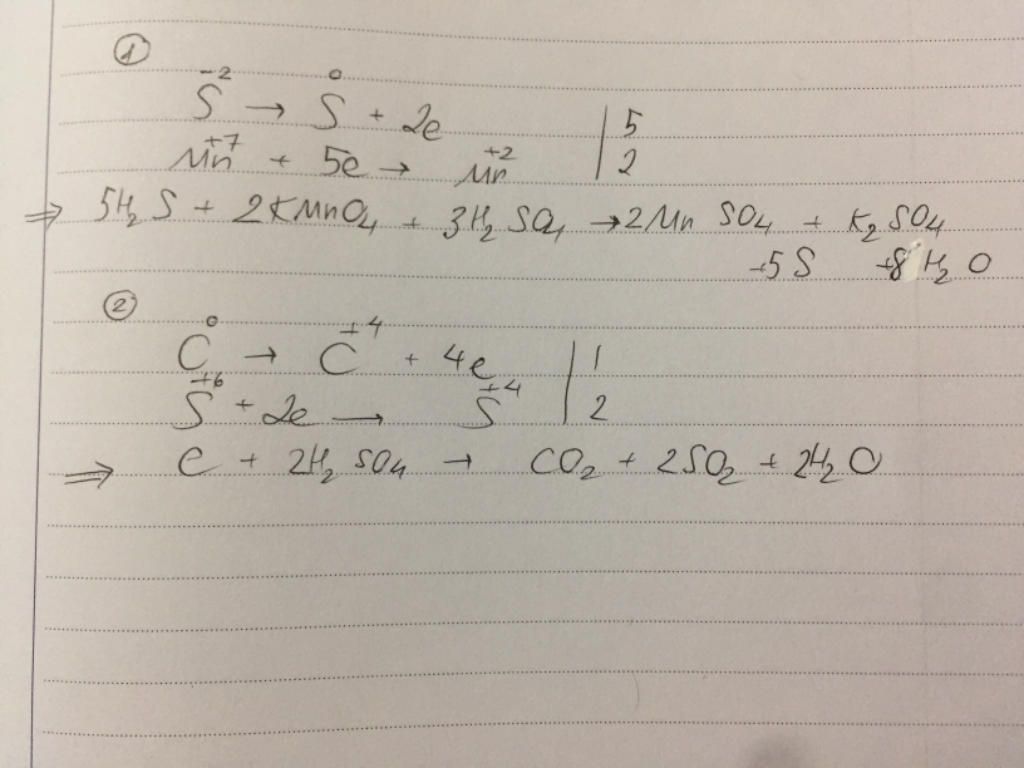 ①
S⁻² → S⁰ + 2e | 5
Mn⁺⁷ + 5e → Mn⁺² | 2
⇒ 5H₂S + 2KMnO₄ + 3H₂SO₄ → 2MnSO₄ + K₂SO₄
+5S +8H₂O
②
C⁰ → C⁺⁴ + 4e | 1
S⁺⁶ + 2e → S⁺⁴ | 2
⇒ C + 2H₂SO₄ → CO₂ + 2SO₂ + 2H₂O